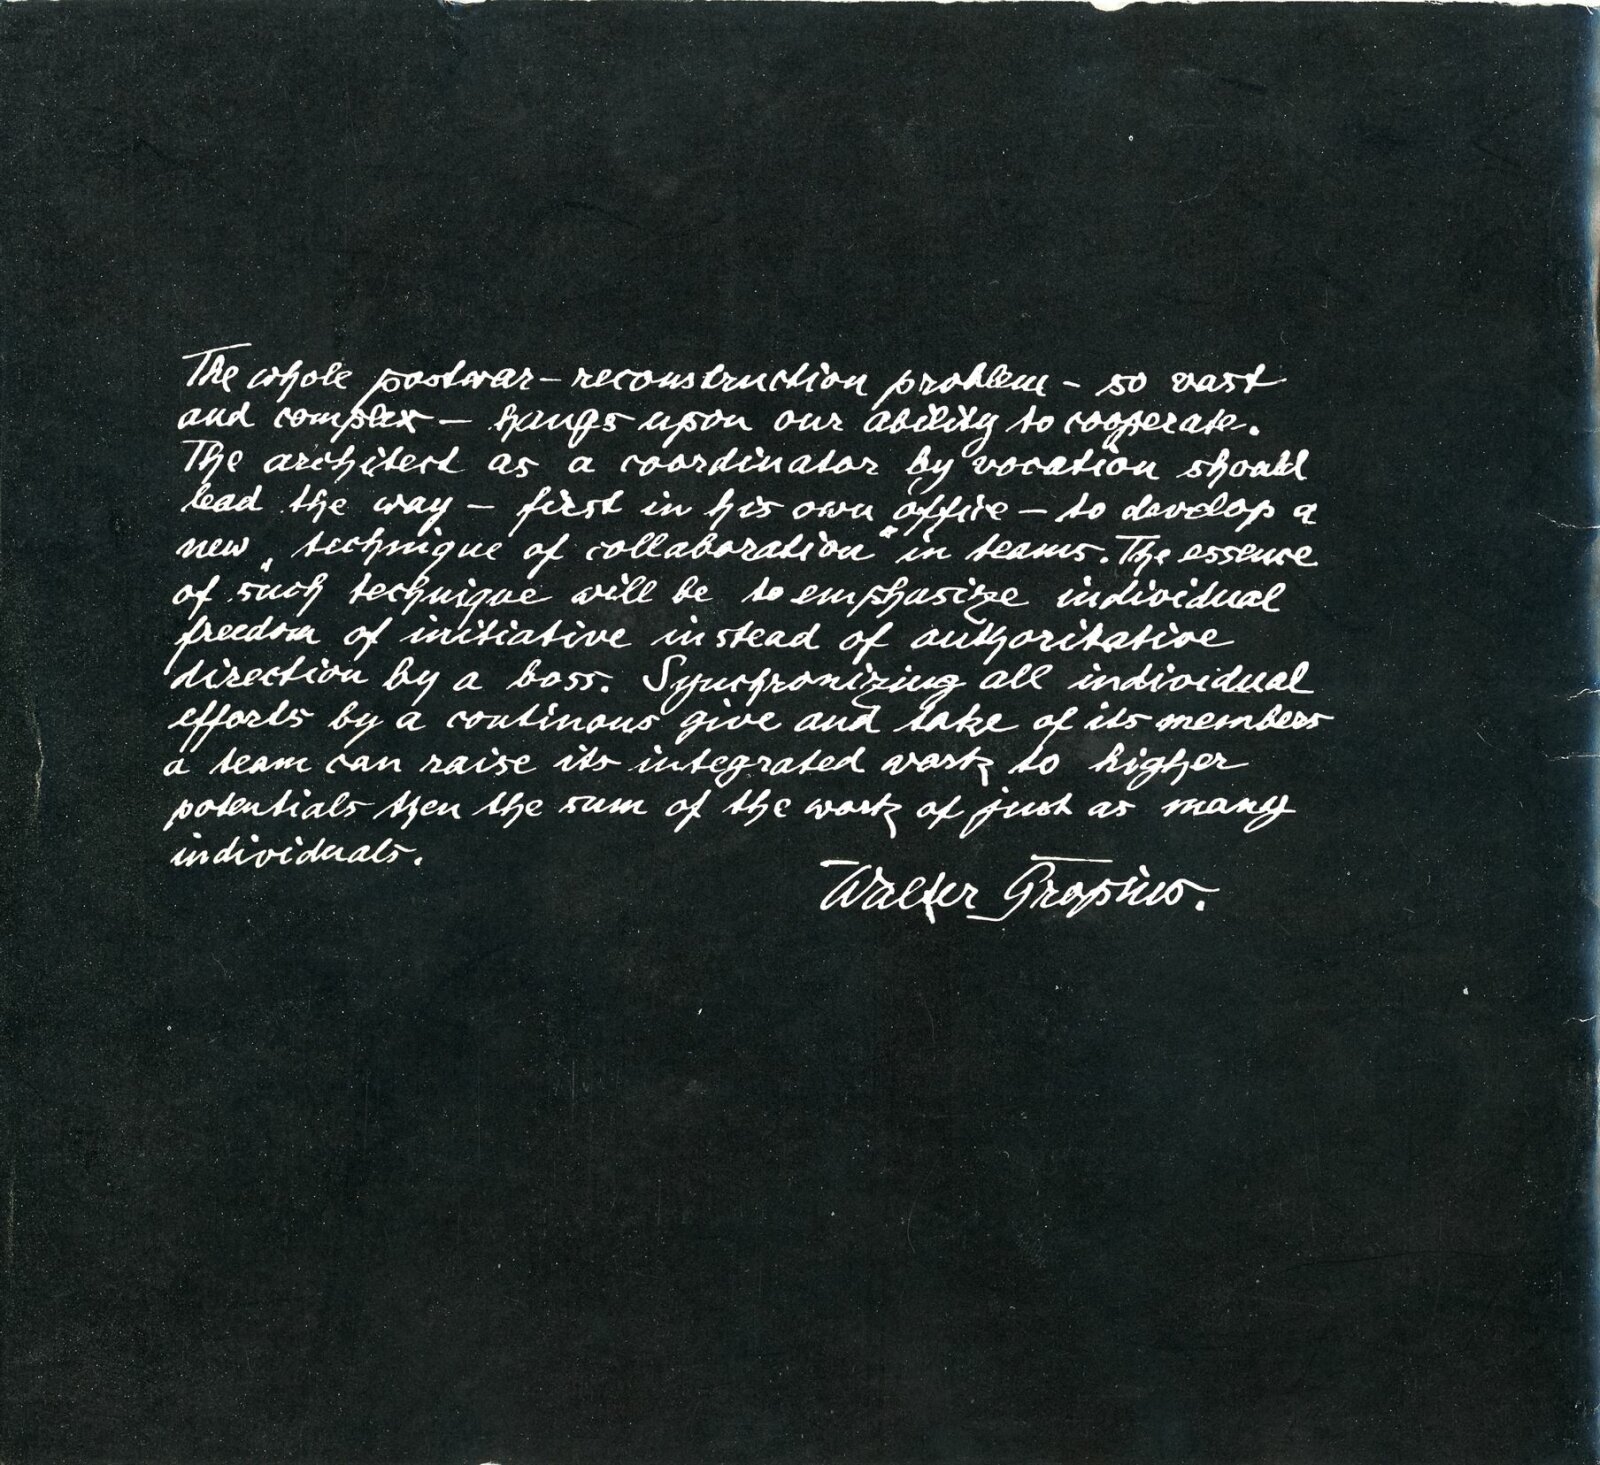 The whole postwar-reconstruction problem - so vast
and complex - hangs upon our ability to cooperate.
The architect as a coordinator by vocation should
lead the way - first in his own office - to develop a
new „technique of collaboration“ in teams. The essence
of such technique will be to emphasize individual
freedom of initiative instead of authoritative
direction by a boss. Synchronizing all individual
efforts by a continous give and take of its members
a team can raise its integrated work to higher
potentials then the sum of the work of just as many
individuals.
Walter Gropius.